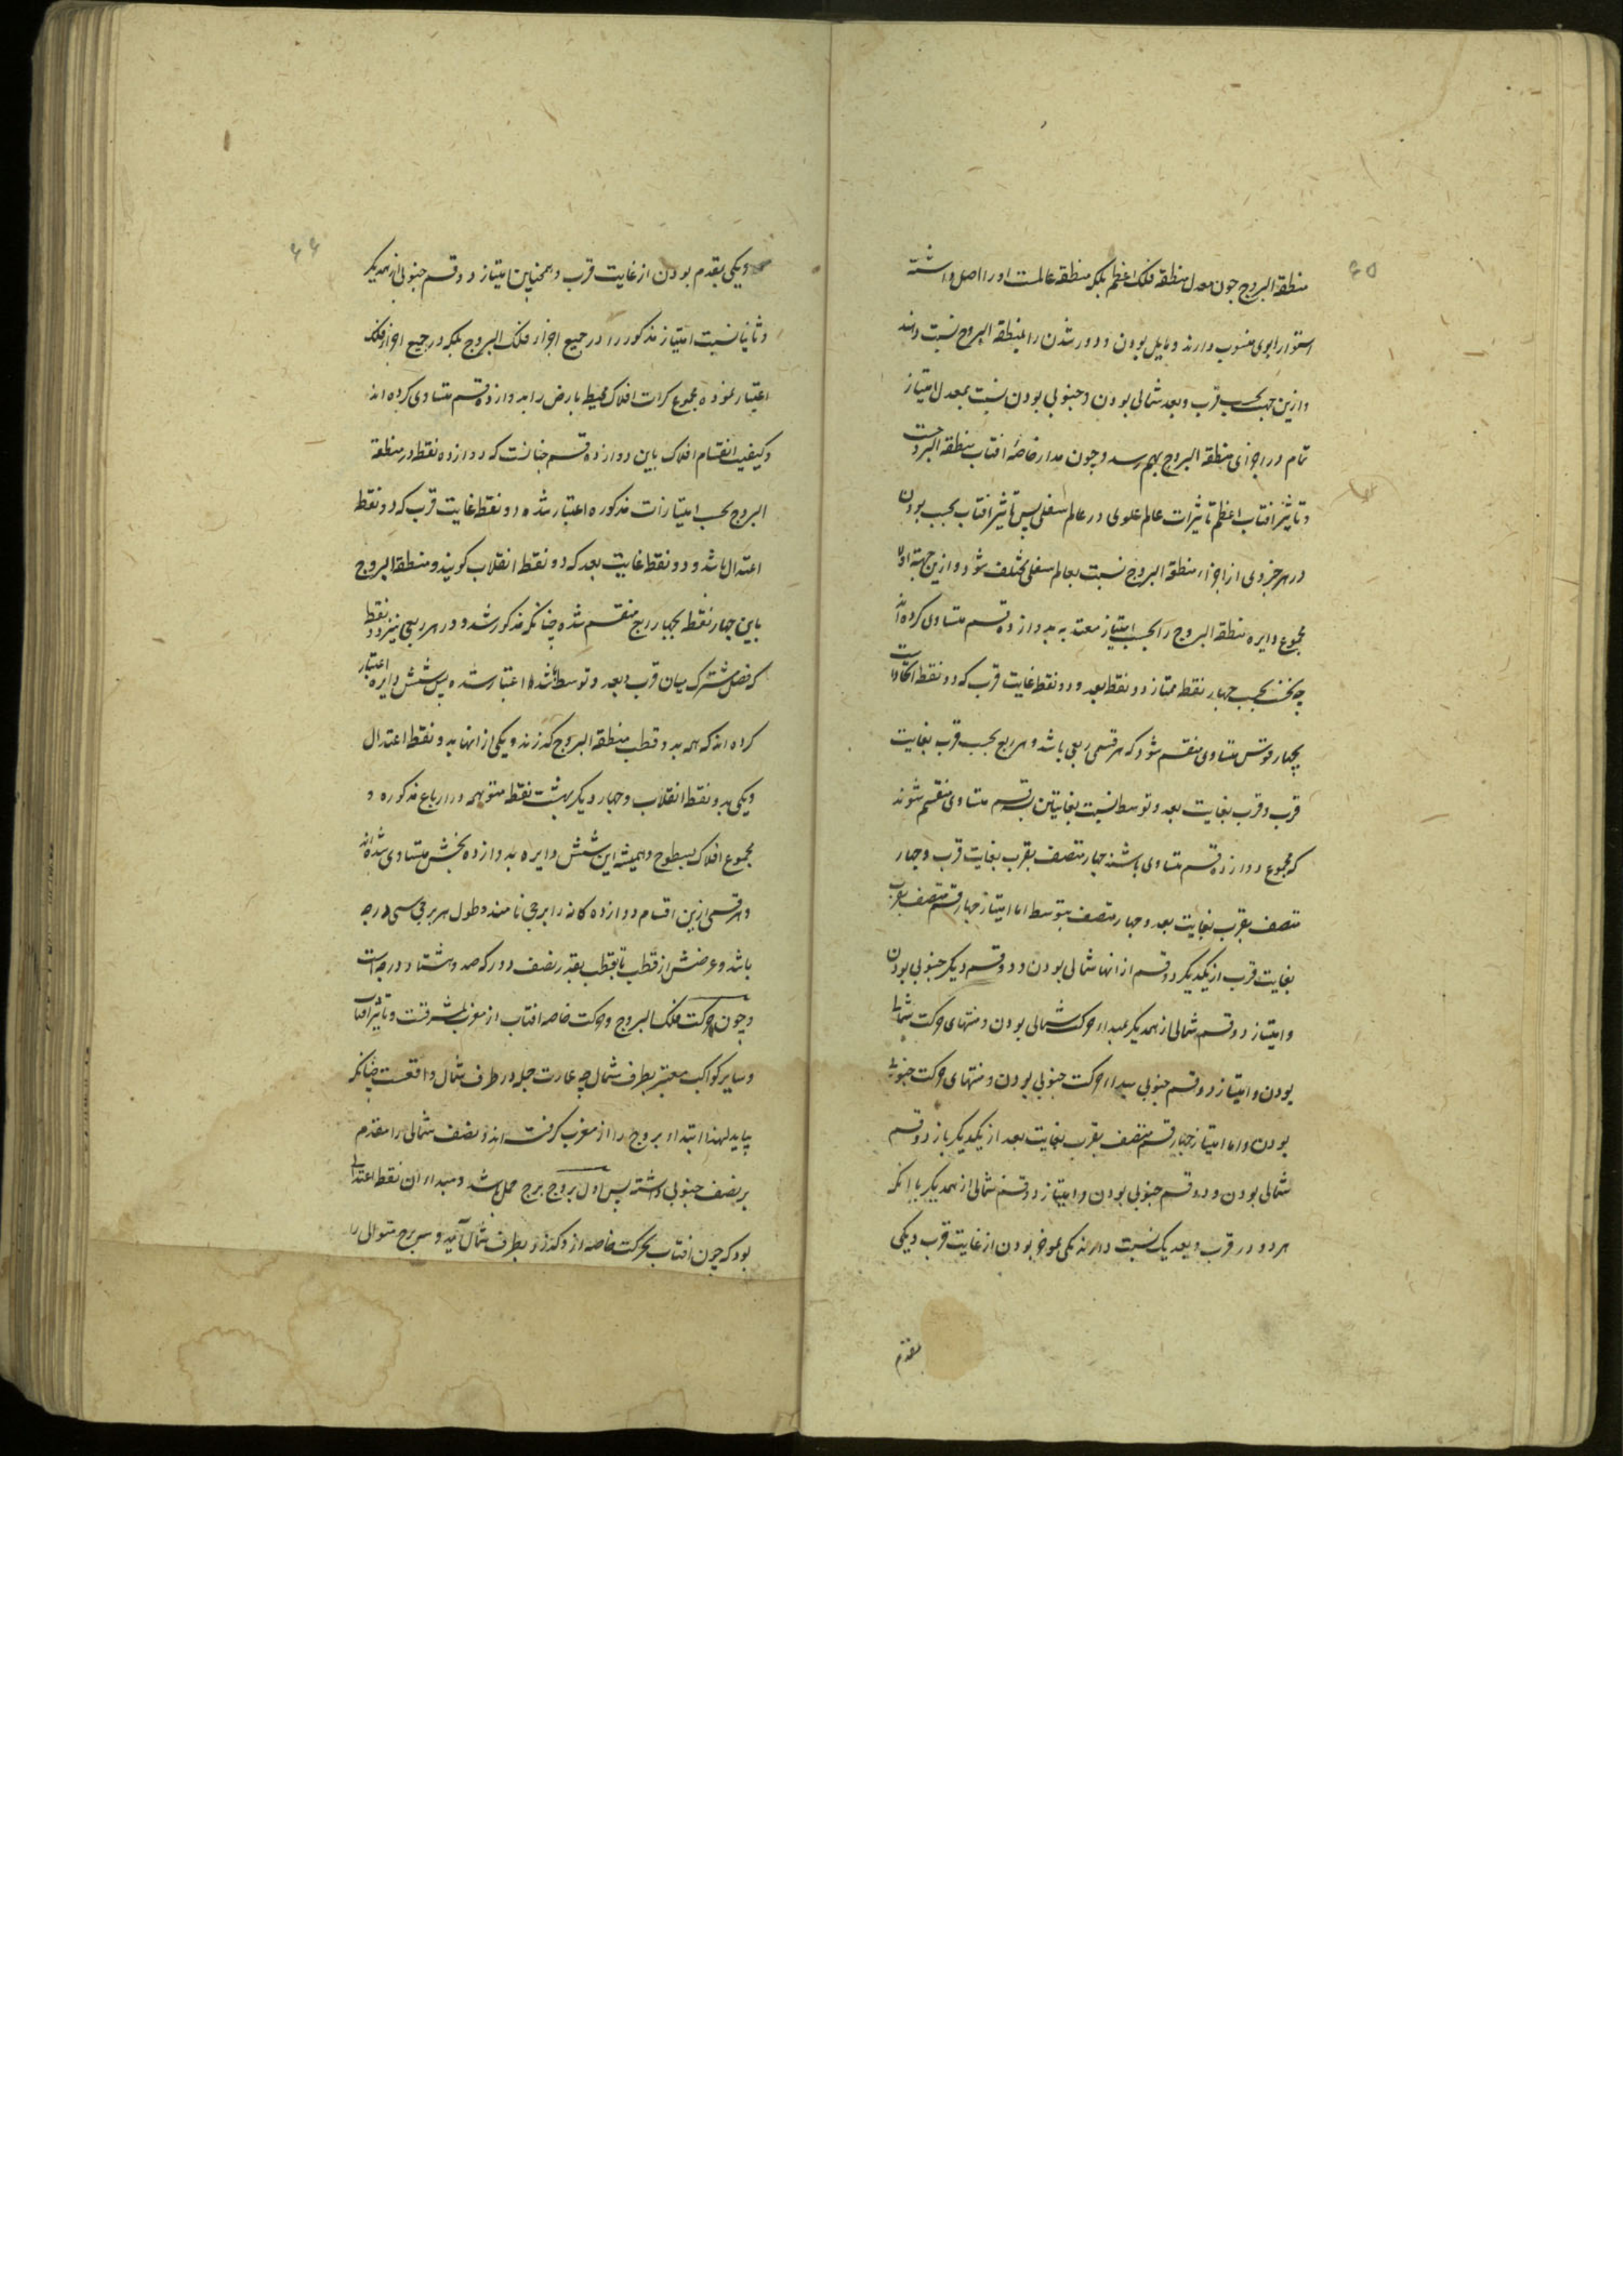 ۶۵
منطقة البروج چون معدل منطقه فلک اعظم بلکه منطقه عالمست او را اصل داشته
استوا را بوی منسوب دارند و مایل بودن و دور شدن را بمنطقة البروج نسبت دهند
و ازین جهت بحسب قرب و بعد شمالی بودن و جنوبی بودن نسبت بمعدل امتیاز
تمام در اجزای منطقة البروج بهم رسد و چون مدار خاصهٔ افتاب منطقة البروجست
و تاثیر افتاب اعظم تاثیرات عالم علوی در عالم سفلی پس تاثیر افتاب بحسب بودن
در هر جزوی از اجزاء منطقة البروج نسبت بعالم سفلی مختلف شود و ازین جهة اولا
مجموع دایره منطقة البروج را بحسب امتیاز معتد به بدوازده قسم متساوی کرده‌اند
چه نخست بحسب چهار نقطه ممتاز دو نقطه بعد و دو نقطه غایت قرب که دو نقطه
بچهار قوس متساوی منقسم شود که هر قسمی ربعی باشد و هر ربع بحسب قرب بغایت
قرب و قرب بغایت بعد و توسط نسبت بغایتین بسه قسم متساوی منقسم شوند
که مجموع دوازده قسم متساوی باشند چهار متصف بقرب بغایت قرب و چهار
متصف بقرب بغایت بعد و چهار متصف بتوسط اما امتیاز چهار قسم متصف بقرب
بغایت قرب از یکدیگر دو قسم از انها شمالی بودن و دو قسم دیگر جنوبی بودن
و امتیاز دو قسم شمالی از همدیگر بمبداء حرکت شمالی بودن و منتهای حرکت شمالی
بودن و امتیاز دو قسم جنوبی بمبداء حرکت جنوبی بودن و منتهای حرکت جنوبی
بودن و اما امتیاز چهار قسم متصف بقرب بغایت بعد از یکدیگر باز دو قسم
شمالی بودن و دو قسم جنوبی بودن و امتیاز دو قسم شمالی از همدیگر با انکه
هر دو در قرب و بعد یک نسبت دارند یکی بموخر بودن از غایت قرب و یکی
مقدم
۶۶
و یکی بقدم بودن از غایت قرب و همچنین امتیاز دو قسم جنوبی از همدیگر
و ثانیا نسبت امتیاز مذکور را در جمیع اجزاء فلک البروج بلکه در جمیع اجزاء فلک
اعتبار نموده مجموع کرات افلاک محیط بارض را بدوازده قسم متساوی کرده‌اند
و کیفیت انقسام افلاک باین دوازده قسم چنانست که دوازده نقطه در منطقة
البروج بحسب امتیازات مذکوره اعتبار شده دو نقطه غایت قرب که دو نقطه
اعتدال باشد و دو نقطه غایت بعد که دو نقطه انقلاب گویند و منطقة البروج
باین چهار نقطه بچهار ربع منقسم شده چنانکه مذکور شد و در هر ربعی نیز دو نقطه
که فصل مشترک میان قرب و بعد و توسط باشد اعتبار شده پس شش دایره اعتبار
کرده اند که همه بدو قطب منطقة البروج گذرند و یکی از انها بدو نقطه اعتدال
و یکی بدو نقطه انقلاب و چهار دیگر بهشت نقطه متوهمه در ارباع مذکوره و
مجموع افلاک بسطوح وهمیه این شش دایره بدوازده بخش متساوی شده اند
و هر قسمی ازین اقسام دوازده کانه را برجی نامند و طول هر برجی سی درجه
باشد و عرضش از قطب تا بقطب بقدر نصف دور که صد و هشتاد درجه است
و چون حرکت فلک البروج و حرکت خاصه افتاب از مغرب بمشرقست و تاثیر افتاب
و سایر کواکب معتبر بطرف شمال چه عمارت جمله در طرف شمال واقعست چنانکه
بیاید لهذا ابتداء بروج را از مغرب گرفته‌اند و نصف شمالی را مقدم
بر نصف جنوبی داشته پس اول بروج برج حمل باشد و مبداء آن نقطه اعتدالی
بود که چون افتاب بحرکت خاصه از و گذرد بطرف شمال آید و سه برج متوالی را